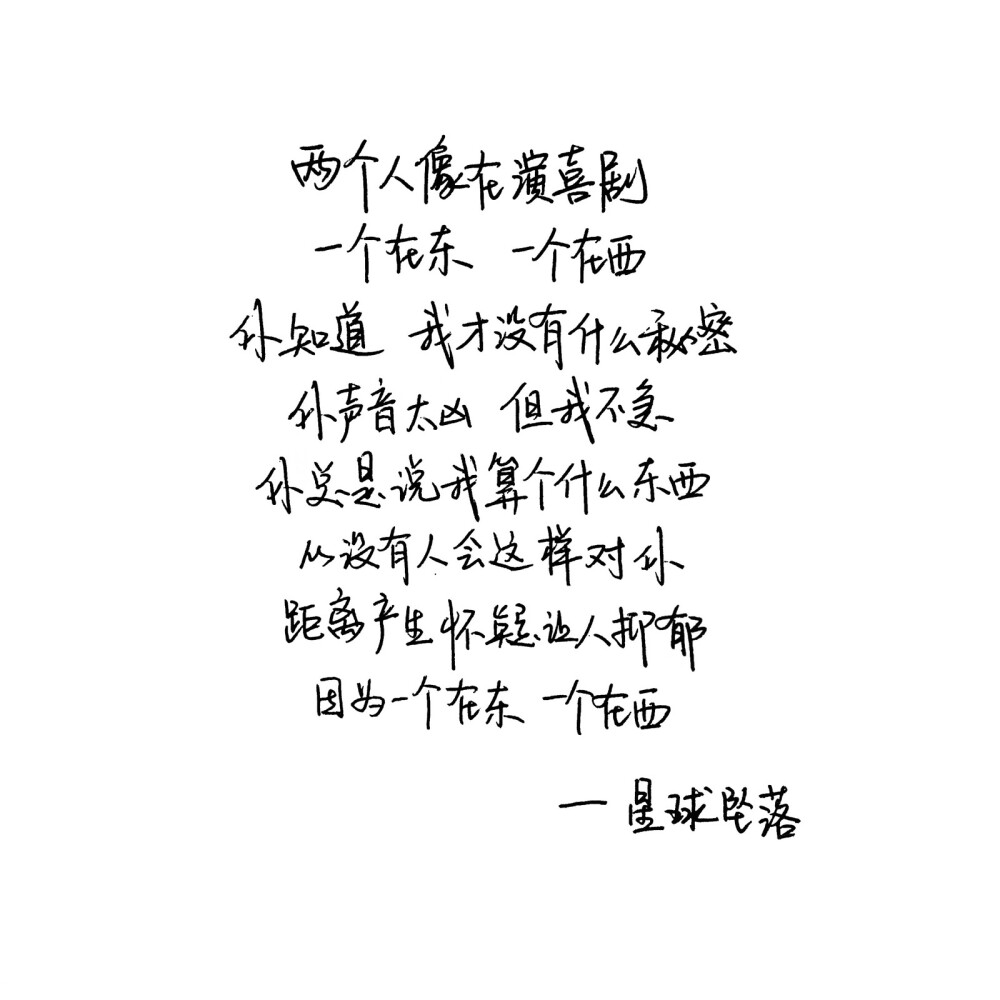 两个人像在演喜剧
一个在东 一个在西
你知道 我才没有什么秘密
你声音太凶 但我不急
你总是说我算个什么东西
从没有人会这样对你
距离产生怀疑让人抑郁
因为一个在东 一个在西
一星球坠落